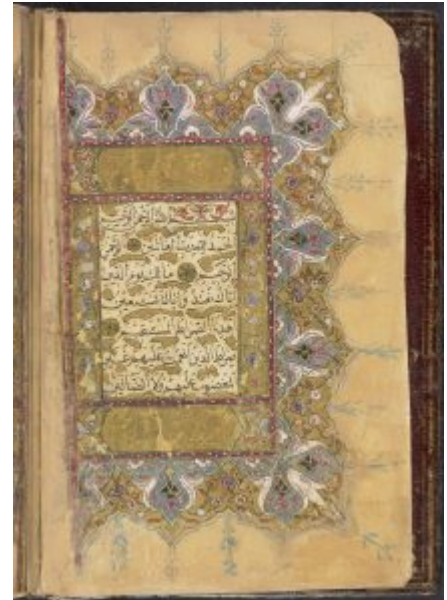 بسم الله الرحمن الرحيم
الحمد لله رب العالمين الرحمن
الرحيم مالك يوم الدين
اياك نعبد واياك نستعين
اهدنا الصراط المستقيم
صراط الذين انعمت عليهم غير
المغضوب عليهم ولا الضالين